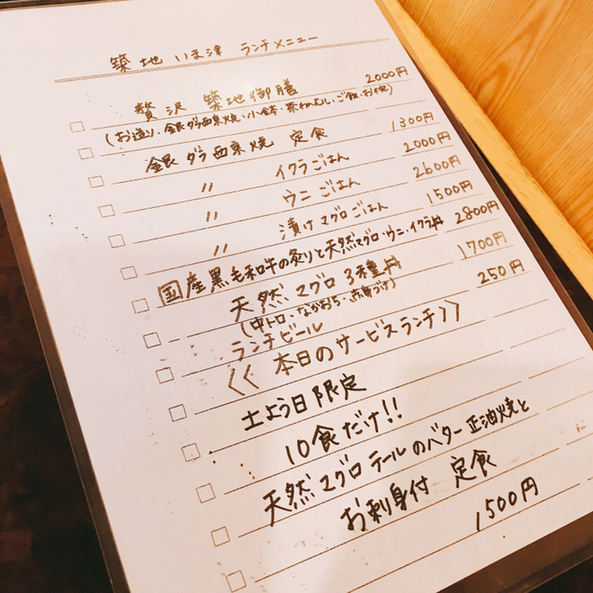 築地 いま津 ランチメニュー
贅沢 築地御膳 2000円
(お造り・銀ダラ西京焼・小鉢・茶わんむし・ご飯・お椀)
銀ダラ西京焼 定食 1300円
〃 イクラごはん 2000円
〃 ウニごはん 2600円
〃 漬けマグロごはん 1500円
国産黒毛和牛の炙りと天然マグロ・ウニ・イクラ丼 2800円
天然マグロ3種丼 1700円
(中トロ・なかおち・赤身づけ)
ランチビール 250円
<< 本日のサービスランチ >>
土よう日限定
10食だけ!!
天然マグロテールのバター正油焼と
お刺身付 定食
1500円